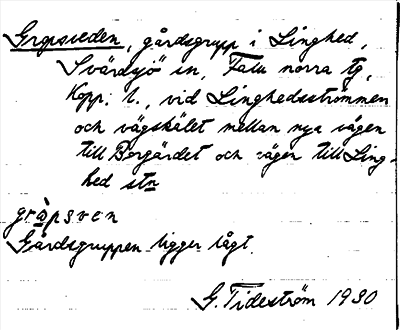 Gropsveden, gårdsgrupp i Linghed,
Svärdsjö sn, Falu norra tg,
Kopp. l., vid Linghedsströmmen
och vägskälet mellan nya vägen
till Borgärdet och vägen till Ling-
hed stn
gràpsven
Gårdsgruppen ligger lågt.
G. Tideström 1930